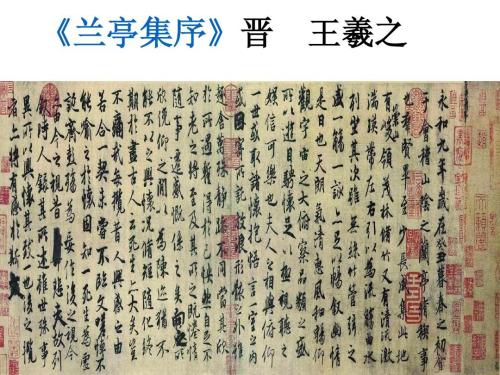 《兰亭集序》晋 王羲之
永和九年歲在癸丑暮春之初會
于會稽山陰之蘭亭脩禊事
也群賢畢至少長咸集此地
有崇山峻領茂林脩竹又有清流激
湍暎帶左右引以為流觴曲水
列坐其次雖無絲竹管弦之
盛一觴一詠亦足以暢敘幽情
是日也天朗氣清惠風和暢仰
觀宇宙之大俯察品類之盛
所以遊目騁懷足以極視聽之
娛信可樂也夫人之相與俯仰
一世或取諸懷抱悟言一室之內
或因寄所託放浪形骸之外雖
趣舍萬殊靜躁不同當其欣
於所遇蹔得於己怏然自足不
知老之將至及其所之既惓情
隨事遷感慨係之矣向之所欣
俛仰之閒以為陳迹猶不
能不以之興懷況脩短隨化終
期於盡古人云死生亦大矣豈
不痛哉每攬昔人興感之由
若合一契未嘗不臨文嗟悼不
能喻之於懷固知一死生為虛
誕齊彭殤為妄作後之視今
亦由今之視昔悲夫故列
敘時人錄其所述雖世殊事
異所以興懷其致一也後之攬
者亦將有感於斯文